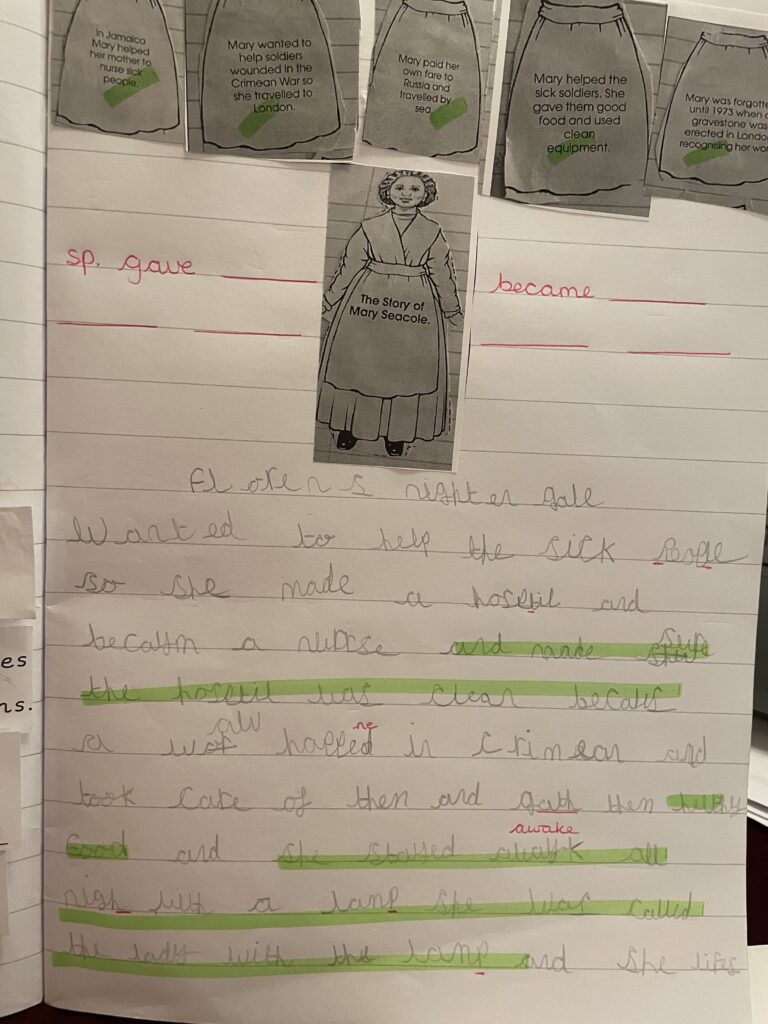 In Jamaica
Mary helped
her mother to
nurse sick
people.
Mary wanted to
help soldiers
wounded in the
Crimean War so
she travelled to
London.
Mary paid her
own fare to
Russia and
travelled by
sea.
Mary helped the
sick soldiers. She
gave them good
food and used
clean
equipment.
Mary was forgotte
until 1973 when a
gravestone was
erected in London
recognising her wor
sp. gave
became
The Story of
Mary Seacole.
Florens nighten gale
Wanted to help the sick People
so she made a hospil and
becaym a nurse and made sure
the hospil was clean becaus
a waw happed ne in Crimean and
took care of them and gath them helthy
food and she stayed awayk all awake
nigh with a lanp she was called
the lady with the lanp and she lifes
es
ns.